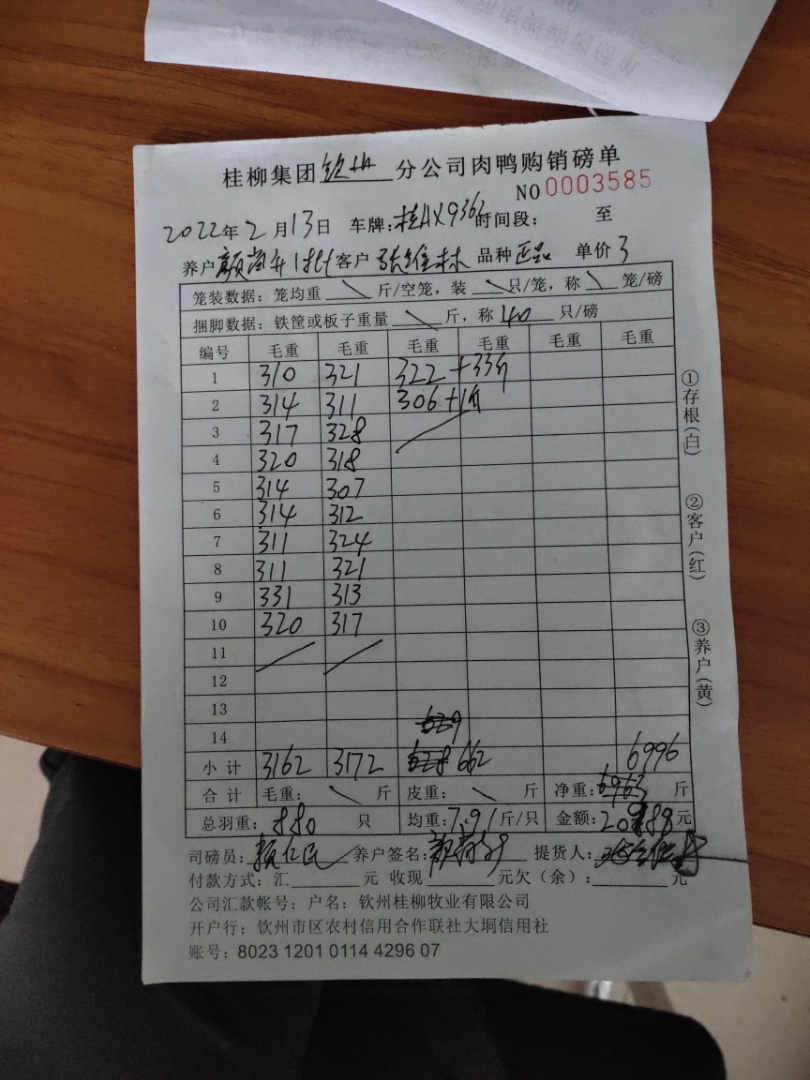 桂柳集团钦州分公司肉鸭购销磅单
NO 0003585
2022年2月13日 车牌:桂AX9363 时间段: 至
养户 客户 张维林 品种 正品 单价 3
笼装数据: 笼均重 斤/空笼, 装 只/笼, 称 笼/磅
捆脚数据: 铁筐或板子重量 斤, 称 40 只/磅
编号 毛重 毛重 毛重 毛重 毛重 毛重
1 310 321 322 +33斤
2 314 311 306 +1斤
3 317 328
4 320 318
5 314 307
6 314 312
7 311 324
8 311 321
9 331 313
10 320 317
11
12
13
14 629
小计 3162 3172 628 662 6996
合计 毛重: 斤 皮重: 斤 净重: 6963 斤
总羽重: 880 只 均重: 7.91 斤/只 金额: 20988 元
司磅员: 颜仁民 养户签名: 提货人:
付款方式: 汇 元 收现 元欠(余): 元
公司汇款帐号: 户名: 钦州桂柳牧业有限公司
开户行: 钦州市区农村信用合作联社大垌信用社
账号: 8023 1201 0114 4296 07
①存根(白)
②客户(红)
③养户(黄)